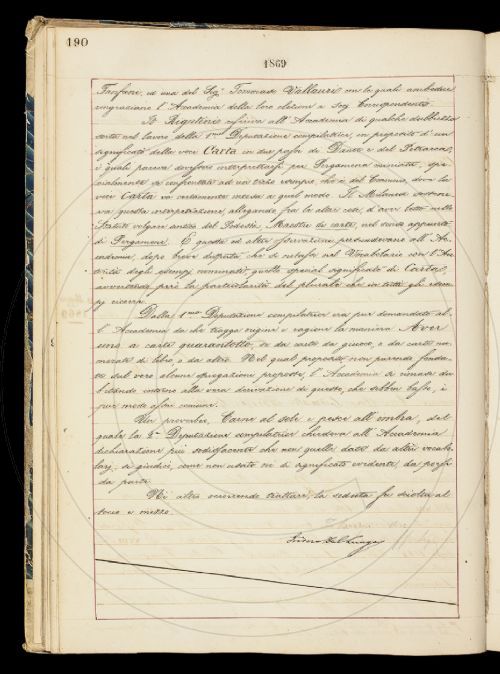 190
1869
Fanfani, ed una del Sig. Tommaso Vallauri, con le quali ambedue
ringraziano l'Accademia della loro elezione a Socj Corrispondenti.
Il Rigutini riferiva all'Accademia di qualche dubbiezza
sorta nel lavoro della 1ma Deputazione compilatrice, in proposito d'un
significato della voce Carta in due passi di Dante e del Petrarca,
i quali pareva dovessero interpretarsi per Pergamena miniata, spe-
cialmente a confrontarli ad un terzo esempio, che è del Comunio, dove la
voce Carta va certamente intesa a quel modo. Il Milanesi sostene-
va questa interpretazione, allegando fra le altre cose, d'aver letto nello
Statuto volgare antico del Potestà, Maestri di carte, nel senso appunto
di Pergamene. E queste ed altre osservazioni persuadevano all'Ac-
cademia, dopo breve disputa, che si notasse nel Vocabolario con l'Au-
torità degli esempj nominati quello special significato di Carta,
avvertendo però la particolarità del plurale che in tutti gli esem-
pj ricorre.
Dalla 1ma Deputazione compilatrice era pur domandato al-
l'Accademia da che tragga origine e ragione la maniera Aver
uno a carte quarantotto, se da carte da giuoco, o da carte nu-
merate di libro o da altro. Nel qual proposito non parendo fonda-
te sul vero alcune spiegazioni proposte, l'Accademia si rimase du-
bitando intorno alla vera derivazione di questo, che sebben basso, è
pur modo assai comune.
Un proverbio, Carne al sole e pesce all'ombra, del
quale la 2a Deputazione compilatrice chiedeva all'Accademia
dichiarazione più sodisfacente che non quella data da altri vocabo-
larj, si giudicò, come non usato nè di significato evidente, da porsi
da parte.
Nè altro occorrendo trattare, la seduta fu sciolta al
tocco e mezzo.
Isidoro Del Lungo